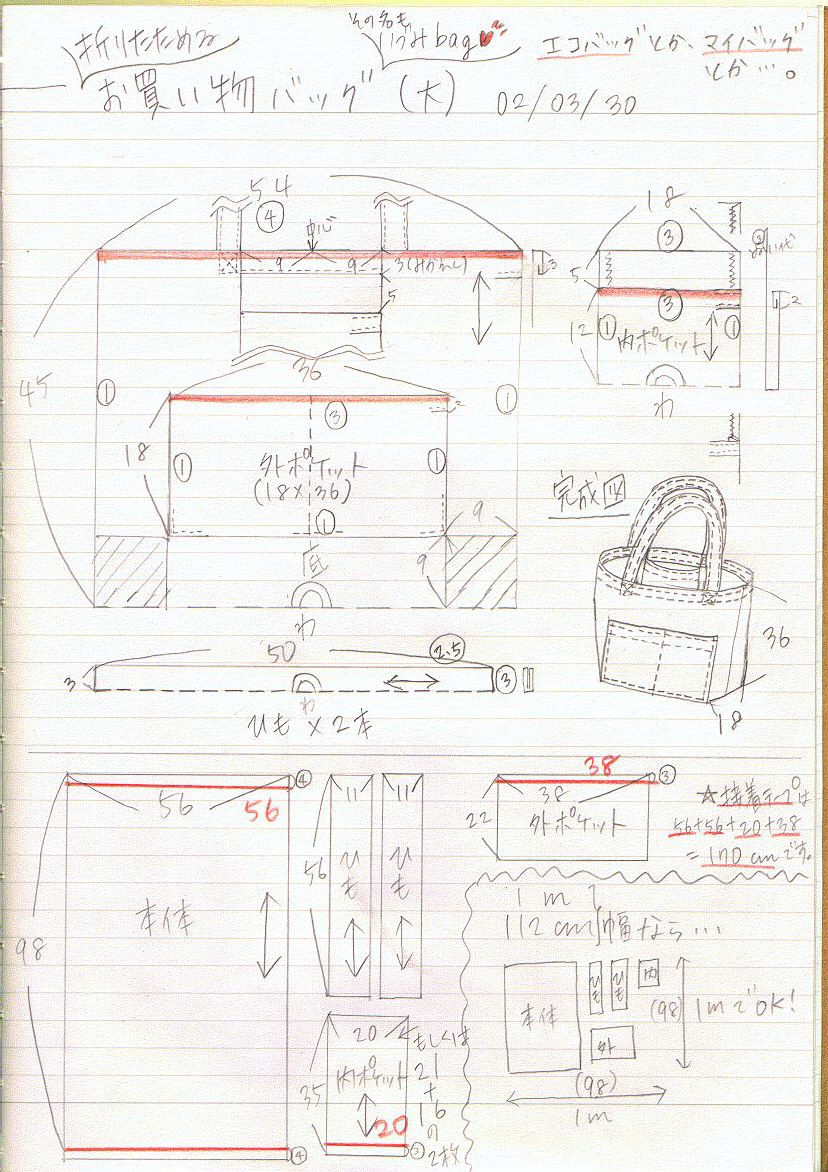 折りたためる
その名も
いつみbag
エコバッグとか、マイバッグ
とか…。
お買い物バッグ(大) 02/03/30
54
④
中心
9 9 3(みかえし)
3
5
45
①
①
36
③
2
18
①
外ポケット
(18×36)
①
①
底
わ
9
9
18
③
5
③
12
①
内ポケット
①
わ
2
完成図
36
18
50
2.5
3
③
わ
ひも×2本
④
56
56
98
本体
④
11 11
56
ひも
ひも
20
もしくは
21
+
16
の
2枚
35
内ポケット
20
③
38
③
38
22
外ポケット
☆接着テープは
56+56+20+38
=170cmです。
1m
112cm 幅なら…
本体
ひも
ひも
内
外
(98)
1mでOK!
(98)
1m